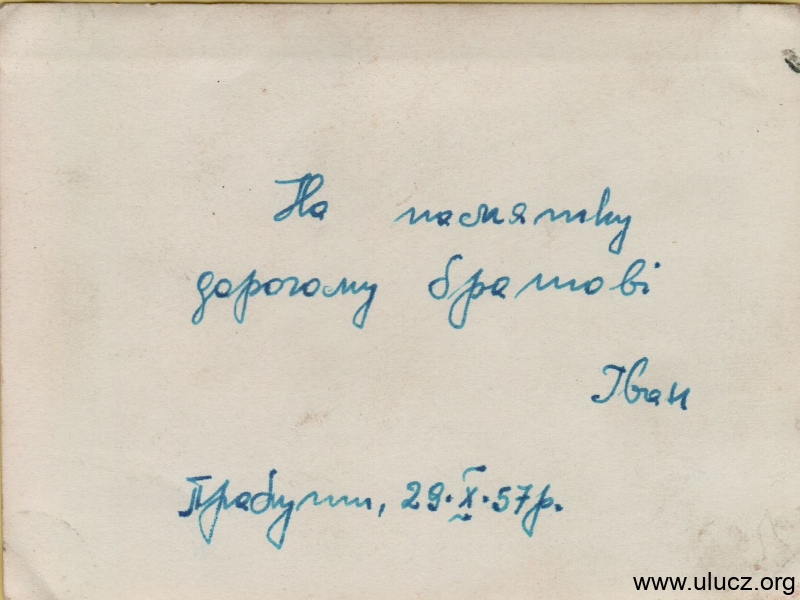 На памятку
дорогому братові
Іван
Прабути, 29.X.57р.
www.ulucz.org